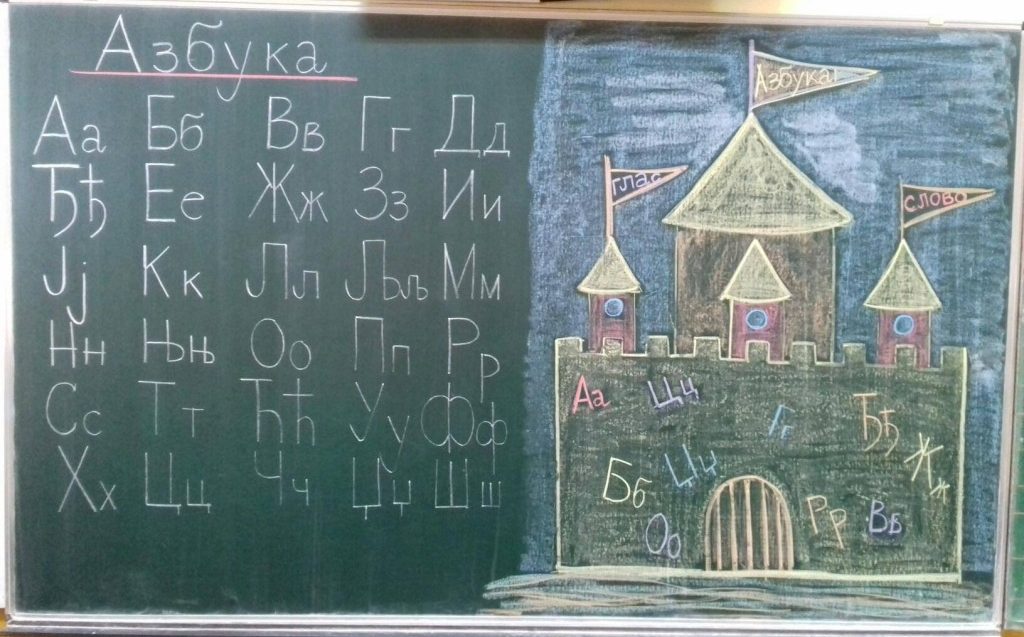 Азбука
Аа Бб Вв Гг Дд
Ђђ Ее Жж Зз Ии
Јј Кк Лл Љљ Мм
Нн Њњ Оо Пп Рр
Сс Тт Ћћ Уу Фф
Хх Цц Чч Џџ Шш
Азбука
глас
слово
Аа Цц Гг Ђђ
Бб Џџ Жж
Оо Рр Вв